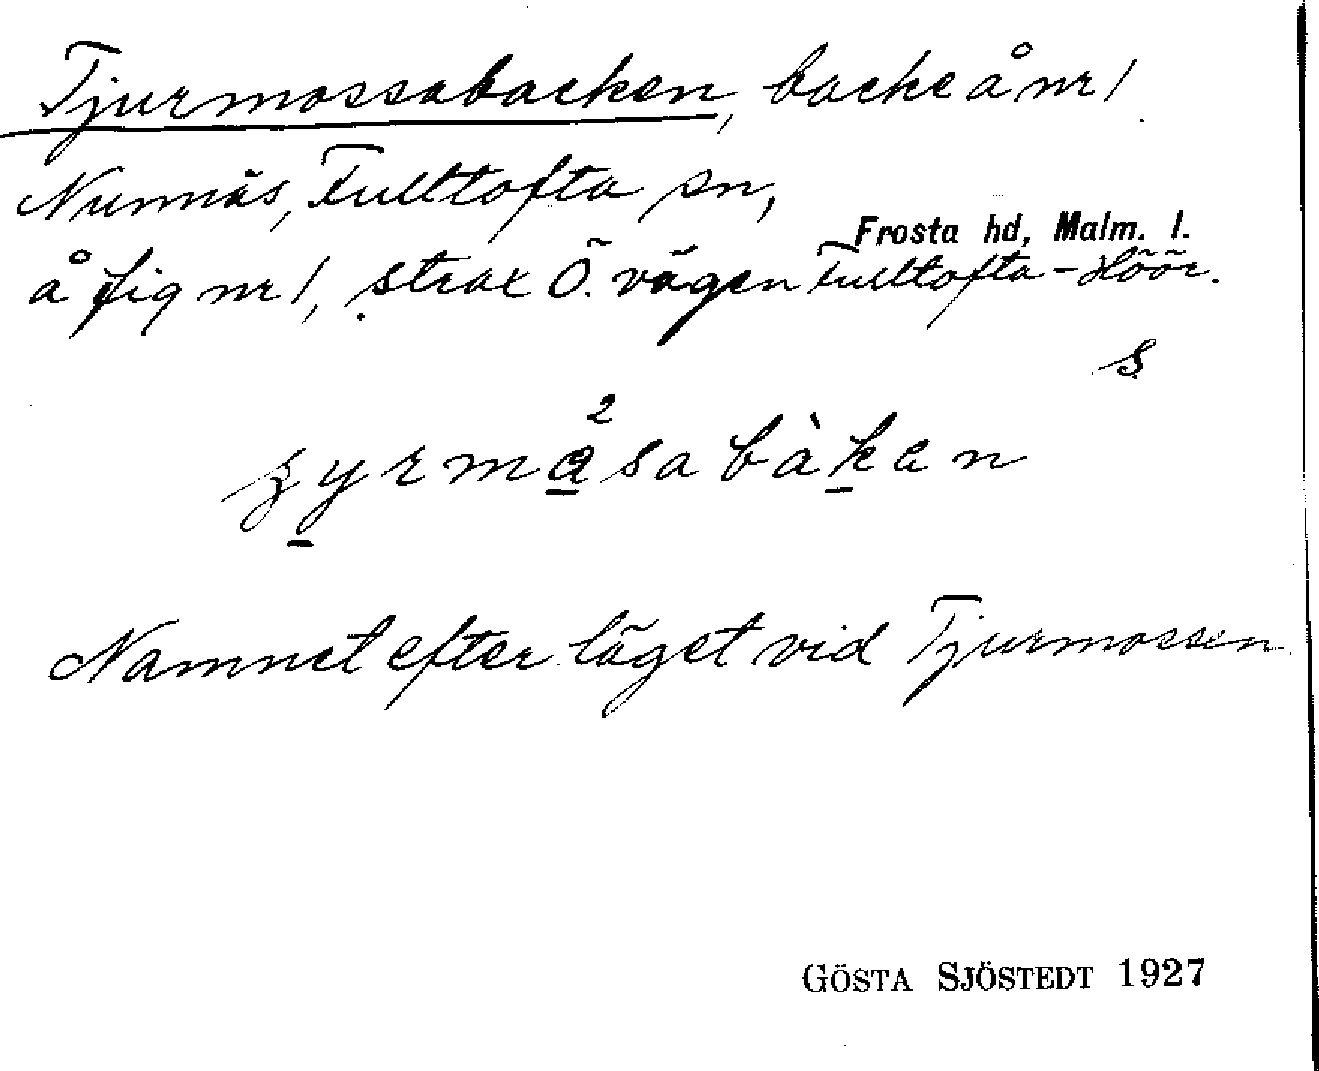 Tjurmossabacken, backe å nr 1
Nunnäs, Fulltofta sn,
Frosta hd, Malm. l.
å fig nr 1, strax Ö. vägen Fulltofta - Höör.
S
Namnet efter läget vid Tjurmossen
GÖSTA SJÖSTEDT 1927